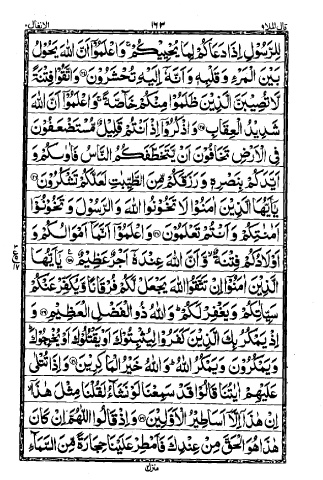 قال الملاء ٩ ١٦٣ الانفال ٨
لِلرَّسُوْلِ اِذَا دَعَاكُمْ لِمَا يُحْيِيْكُمْ ۚ وَاعْلَمُوْۤا اَنَّ اللّٰهَ يَحُوْلُ
بَيْنَ الْمَرْءِ وَ قَلْبِهٖ وَ اَنَّهٗۤ اِلَيْهِ تُحْشَرُوْنَ ﴿۲۴﴾ وَ اتَّقُوْا فِتْنَةً
لَّا تُصِيْبَنَّ الَّذِيْنَ ظَلَمُوْا مِنْكُمْ خَآصَّةً ۚ وَ اعْلَمُوْۤا اَنَّ اللّٰهَ
شَدِيْدُ الْعِقَابِ ﴿۲۵﴾ وَ اذْكُرُوْۤا اِذْ اَنْتُمْ قَلِيْلٌ مُّسْتَضْعَفُوْنَ
فِی الْاَرْضِ تَخَافُوْنَ اَنْ يَّتَخَطَّفَكُمُ النَّاسُ فَاٰوٰىكُمْ وَ
اَيَّدَكُمْ بِنَصْرِهٖ وَ رَزَقَكُمْ مِّنَ الطَّيِّبٰتِ لَعَلَّكُمْ تَشْكُرُوْنَ ﴿۲۶﴾
يٰۤاَيُّهَا الَّذِيْنَ اٰمَنُوْا لَا تَخُوْنُوا اللّٰهَ وَ الرَّسُوْلَ وَ تَخُوْنُوْۤا
اَمٰنٰتِكُمْ وَ اَنْتُمْ تَعْلَمُوْنَ ﴿۲۷﴾ وَ اعْلَمُوْۤا اَنَّمَاۤ اَمْوَالُكُمْ وَ
اَوْلَادُكُمْ فِتْنَةٌ ۙ وَّ اَنَّ اللّٰهَ عِنْدَهٗۤ اَجْرٌ عَظِيْمٌ ﴿۲۸﴾ يٰۤاَيُّهَا
الَّذِيْنَ اٰمَنُوْۤا اِنْ تَتَّقُوا اللّٰهَ يَجْعَلْ لَّكُمْ فُرْقَانًا وَّ يُكَفِّرْ عَنْكُمْ
سَيِّاٰتِكُمْ وَ يَغْفِرْ لَكُمْ ؕ وَ اللّٰهُ ذُو الْفَضْلِ الْعَظِيْمِ ﴿۲۹﴾ وَ
اِذْ يَمْكُرُ بِكَ الَّذِيْنَ كَفَرُوْا لِيُثْبِتُوْكَ اَوْ يَقْتُلُوْكَ اَوْ يُخْرِجُوْكَ ؕ
وَ يَمْكُرُوْنَ وَ يَمْكُرُ اللّٰهُ ؕ وَ اللّٰهُ خَيْرُ الْمٰكِرِيْنَ ﴿۳۰﴾ وَ اِذَا تُتْلٰى
عَلَيْهِمْ اٰيٰتُنَا قَالُوْا قَدْ سَمِعْنَا لَوْ نَشَآءُ لَقُلْنَا مِثْلَ هٰذَاۤ ۙ
اِنْ هٰذَاۤ اِلَّاۤ اَسَاطِيْرُ الْاَوَّلِيْنَ ﴿۳۱﴾ وَ اِذْ قَالُوا اللّٰهُمَّ اِنْ كَانَ
هٰذَا هُوَ الْحَقَّ مِنْ عِنْدِكَ فَاَمْطِرْ عَلَيْنَا حِجَارَةً مِّنَ السَّمَآءِ
منزل